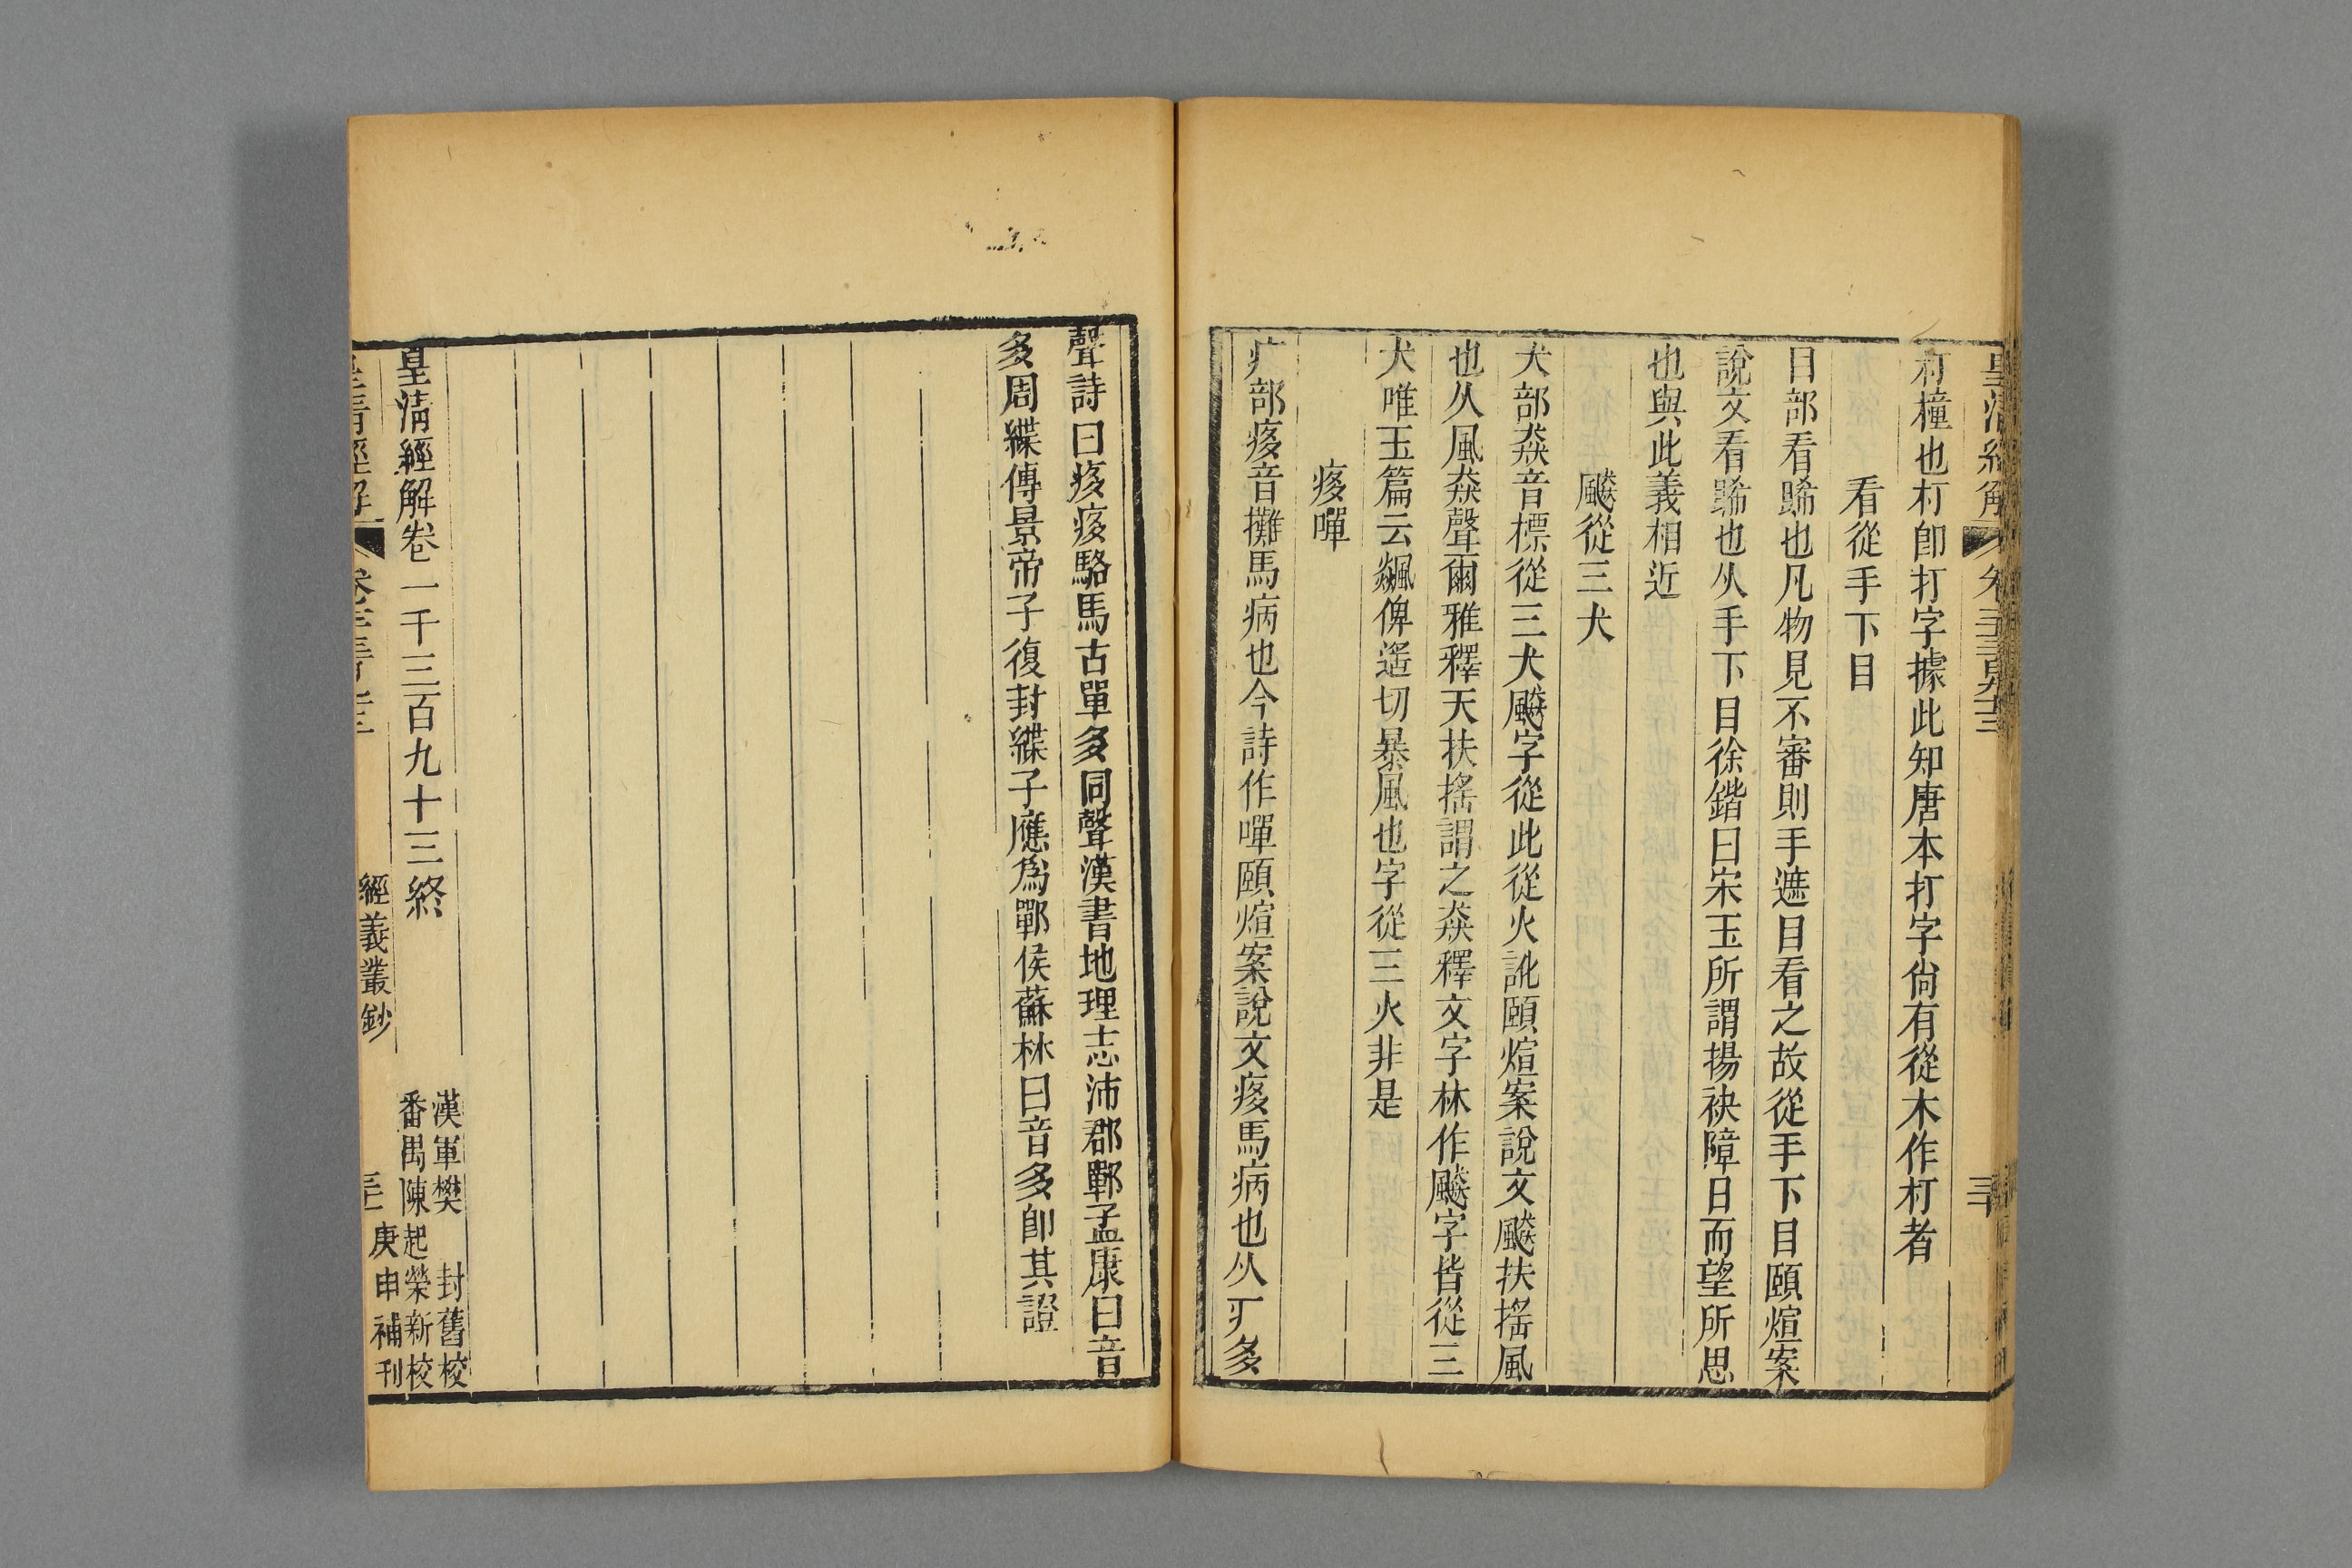 朾橦也朾卽打字據此知唐本打字尙有從木作朾者
看從手下目
目部看睎也凡物見不審則手遮目看之故從手下目頤煊案
說文看睎也从手下目徐鍇曰宋玉所謂揚袂障日而望所思
也與此義相近
飇從三犬
犬部猋音標從三犬飇字從此從火訛頤煊案說文飇扶搖風
也从風猋聲爾雅釋天扶搖謂之猋釋文字林作飇字皆從三
犬唯玉篇云飆俾遙切暴風也字從三火非是
痑嘽
疒部痑音攤馬病也今詩作嘽頤煊案說文痑馬病也从疒多
聲詩曰痑痑駱馬古單多同聲漢書地理志沛郡鄲孟康曰音
多周緤傳景帝子復封緤子應爲鄲侯蘇林曰音多卽其證
皇淸經解卷一千三百九十三終
漢軍樊封舊校
番禺陳起榮新校
經義叢鈔
庚申補刊